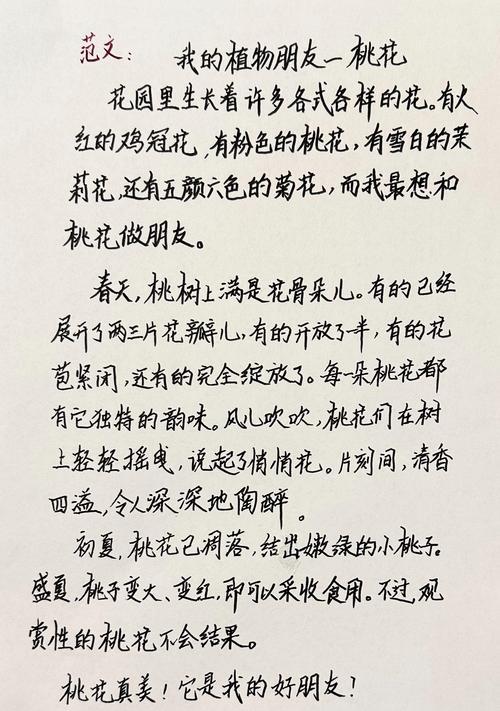 范文：
我的植物朋友—桃花
花园里生长着许多各式各样的花。有火
红的鸡冠花，有粉色的桃花，有雪白的茉
莉花，还有五颜六色的菊花，而我最想和
桃花做朋友。
春天，桃树上满是花骨朵儿。有的已经
展开了两三片花瓣儿，有的开放了一半，有的花
苞紧闭，还有的完全绽放了。每一朵桃花都
有它独特的韵味。风儿吹吹，桃花们在树
上轻轻摇曳，说起了悄悄花。片刻间，清香
四溢，令人深深地陶醉。
初夏，桃花已凋落，结出嫩绿的小桃子。
盛夏，桃子变大、变红，即可以采收食用。不过，观
赏性的桃花不会结果。
桃花真美！它是我的好朋友！